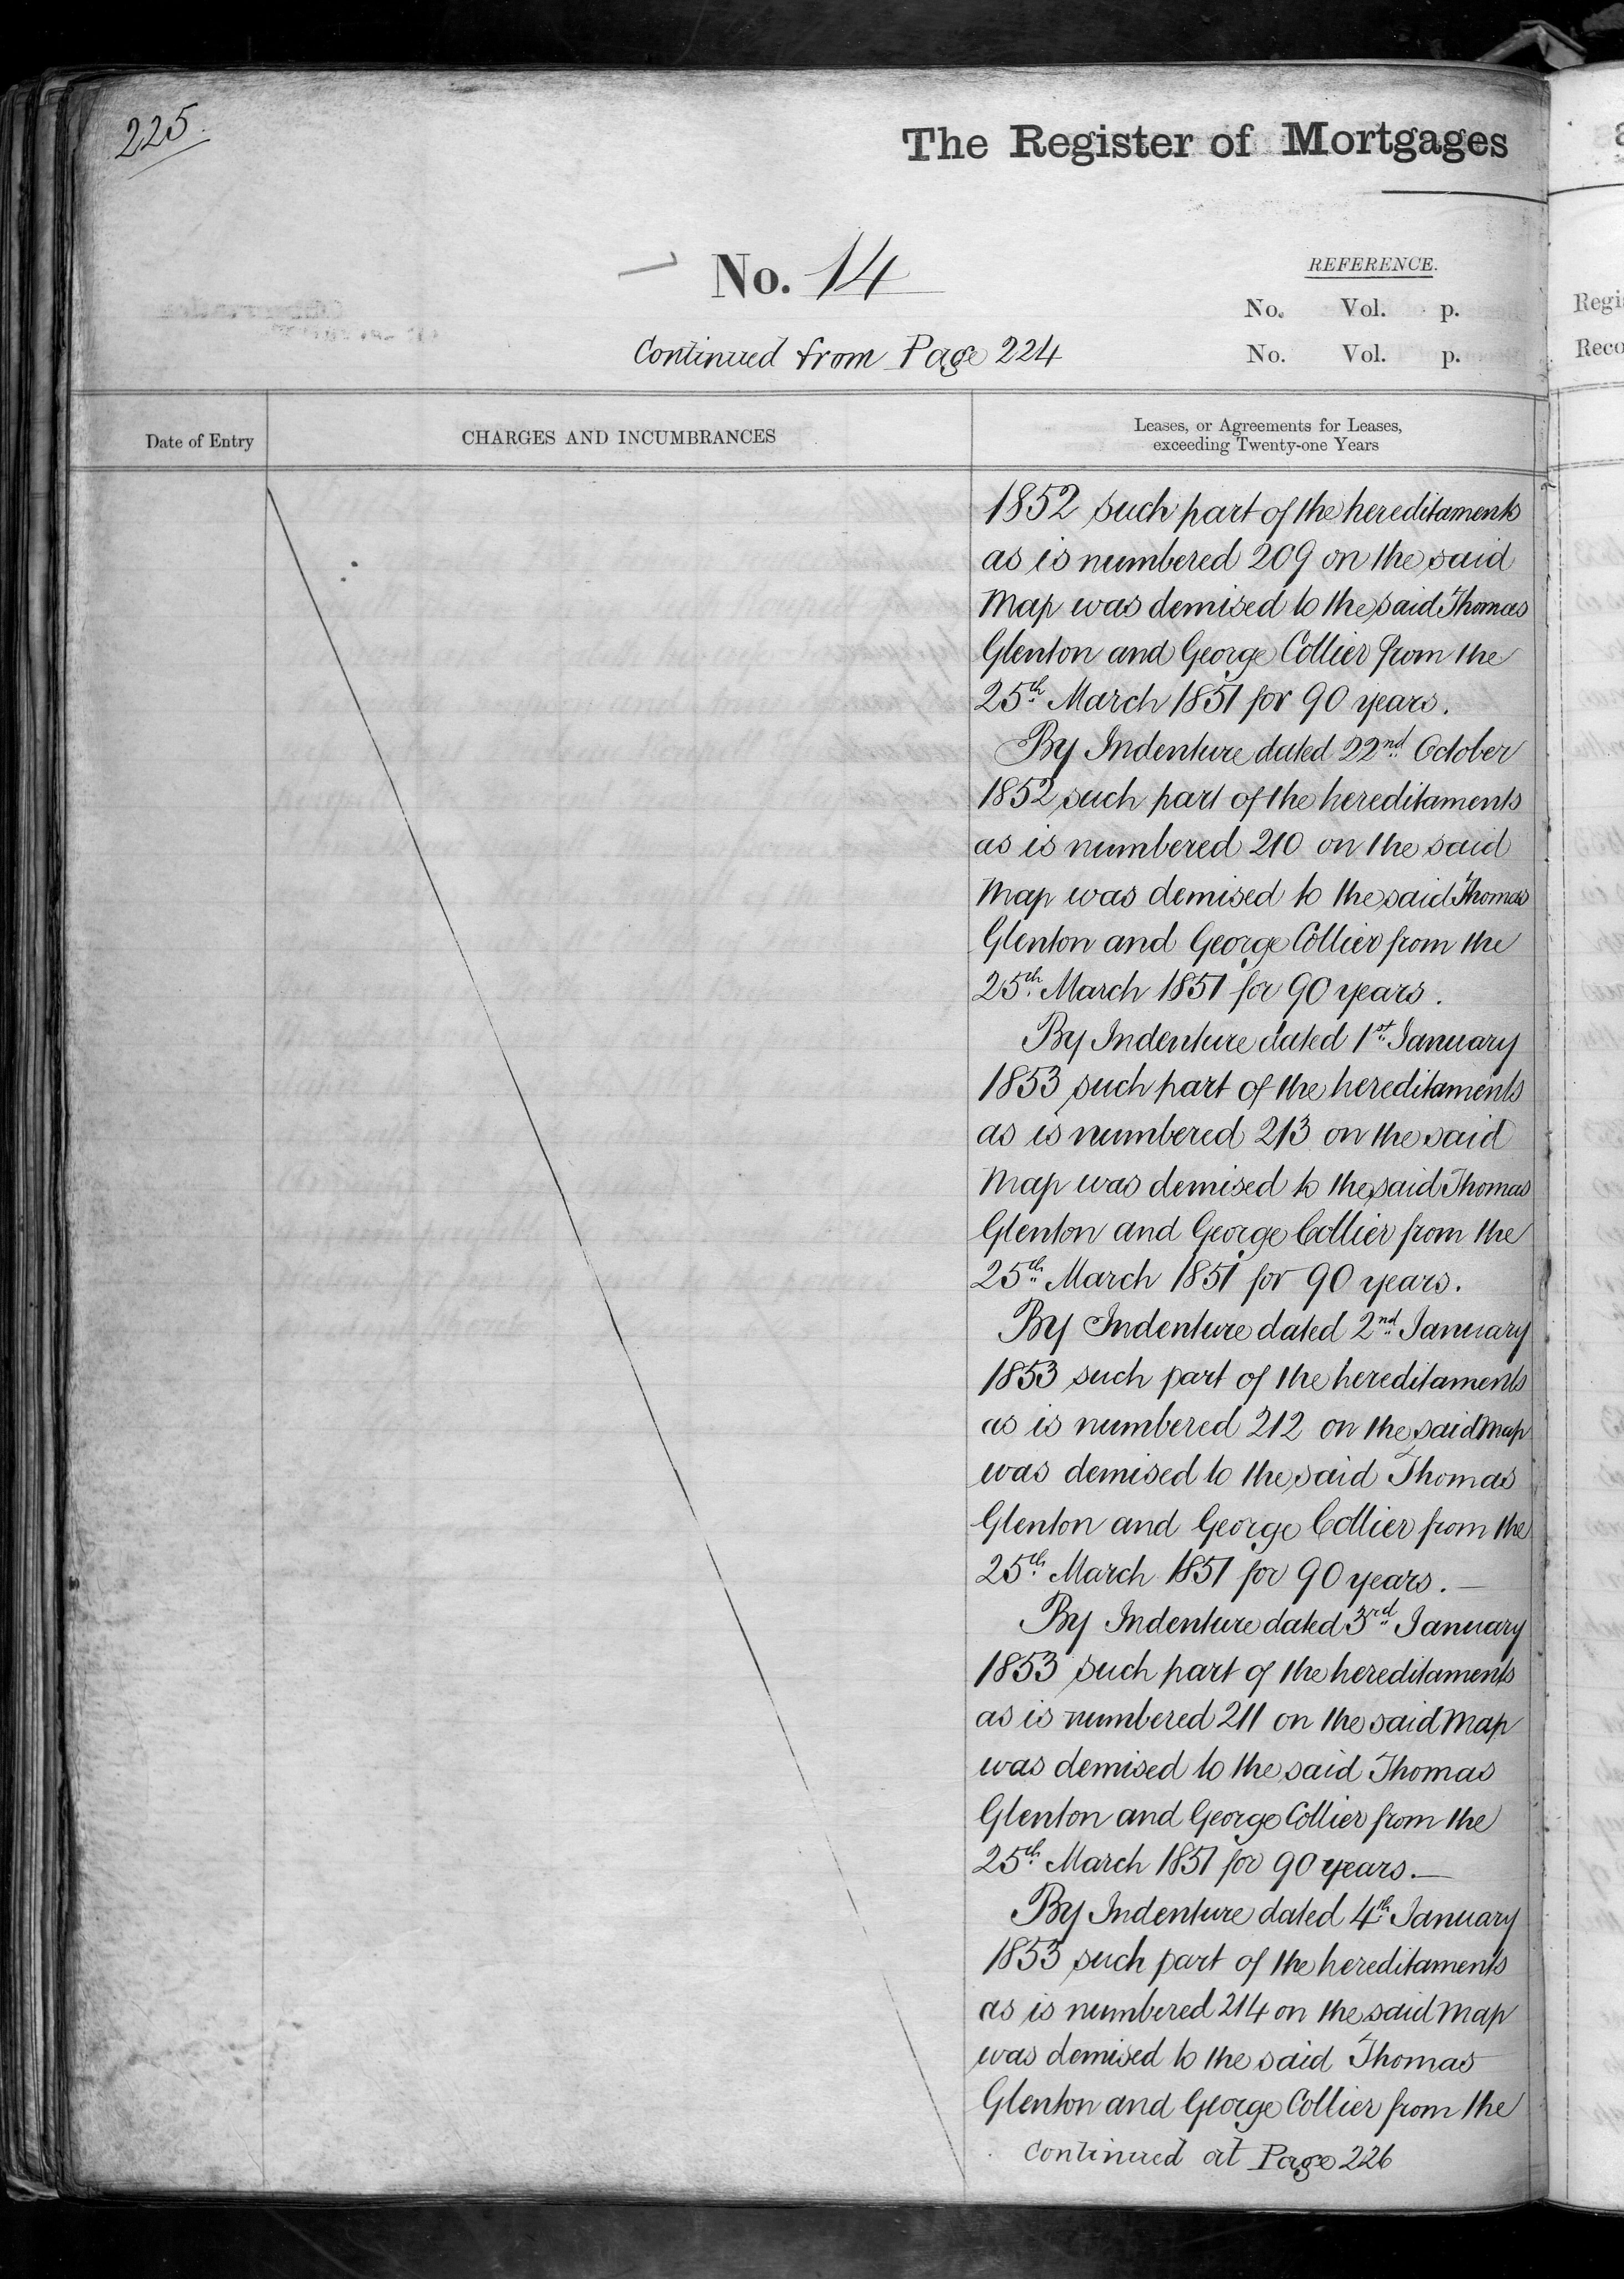 225.
The Register of Mortgages
No. 14
REFERENCE.
No. Vol. p.
Continued from Page 224
No. Vol. p.
Date of Entry
CHARGES AND INCUMBRANCES
Leases, or Agreements for Leases,
exceeding Twenty-one Years
1852 such part of the hereditaments
as is numbered 209 on the said
Map was demised to the said Thomas
Glenton and George Collier from the
25th March 1851 for 90 years.
By Indenture dated 22nd October
1852 such part of the hereditaments
as is numbered 210 on the said
Map was demised to the said Thomas
Glenton and George Collier from the
25th March 1851 for 90 years.
By Indenture dated 1st January
1853 such part of the hereditaments
as is numbered 213 on the said
Map was demised to the said Thomas
Glenton and George Collier from the
25th March 1851 for 90 years.
By Indenture dated 2nd January
1853 such part of the hereditaments
as is numbered 212 on the said Map
was demised to the said Thomas
Glenton and George Collier from the
25th March 1851 for 90 years. —
By Indenture dated 3rd January
1853 such part of the hereditaments
as is numbered 211 on the said Map
was demised to the said Thomas
Glenton and George Collier from the
25th March 1851 for 90 years. —
By Indenture dated 4th January
1853 such part of the hereditaments
as is numbered 214 on the said Map
was demised to the said Thomas
Glenton and George Collier from the
Continued at Page 226
Regi
Reco